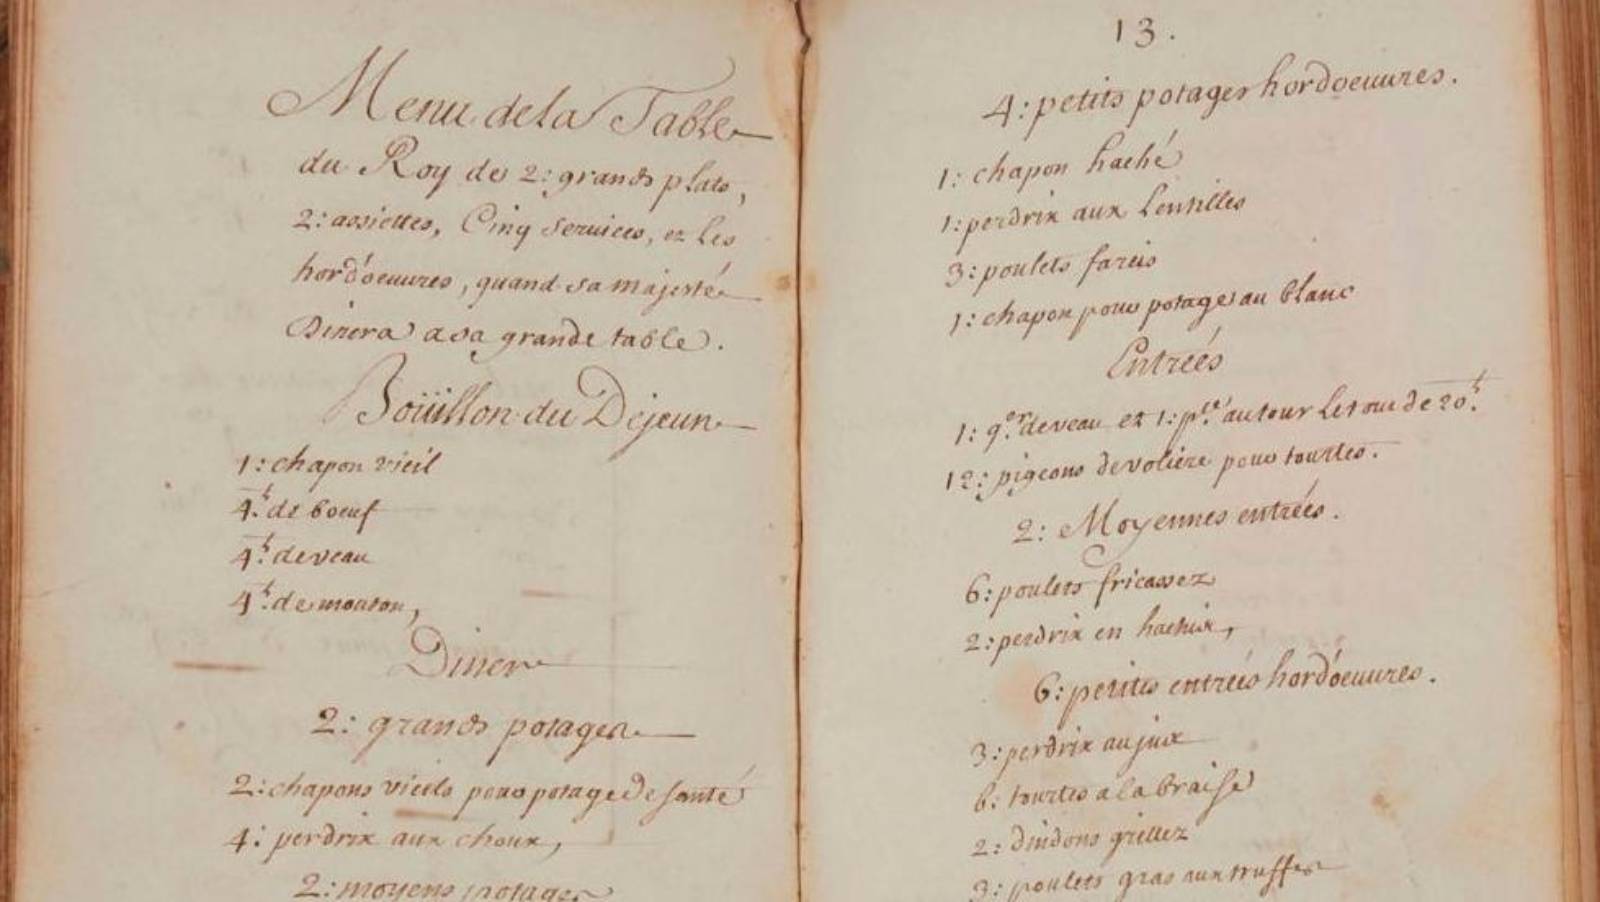 Menu de la Table
du Roy de 2: grands plats,
2: assiettes, Cinq Services, et les
hord'oeuures, quand sa majesté
Dinera a sa grande table.
Boüillon du Dejeun
1: chapon vieil
4.ᵗ de boeuf
4.ᵗ de veau
4.ᵗ de mouton,
Diner
2: grands potages
2: chapons vieils pour potage de santé
4: perdrix aux choux,
2: moyens potages
13.
4: petits potages hord'oeuures.
1: chapon haché
1: perdrix aux Lentilles
3: poulets farcis
1: chapon pour potage au blanc
Entrées
1: q.er de veau et 1: p.ce autour le tout de 20.ᵗ
12: pigeons de voliere pour tourtes.
2: Moyennes entrées.
6: poulets fricassez
2: perdrix en hachis,
6: petites entrées hord'oeuures.
3: perdrix au jux
6: tourtes a la braise
2: dindons grillez
3: poulets gras aux truffes